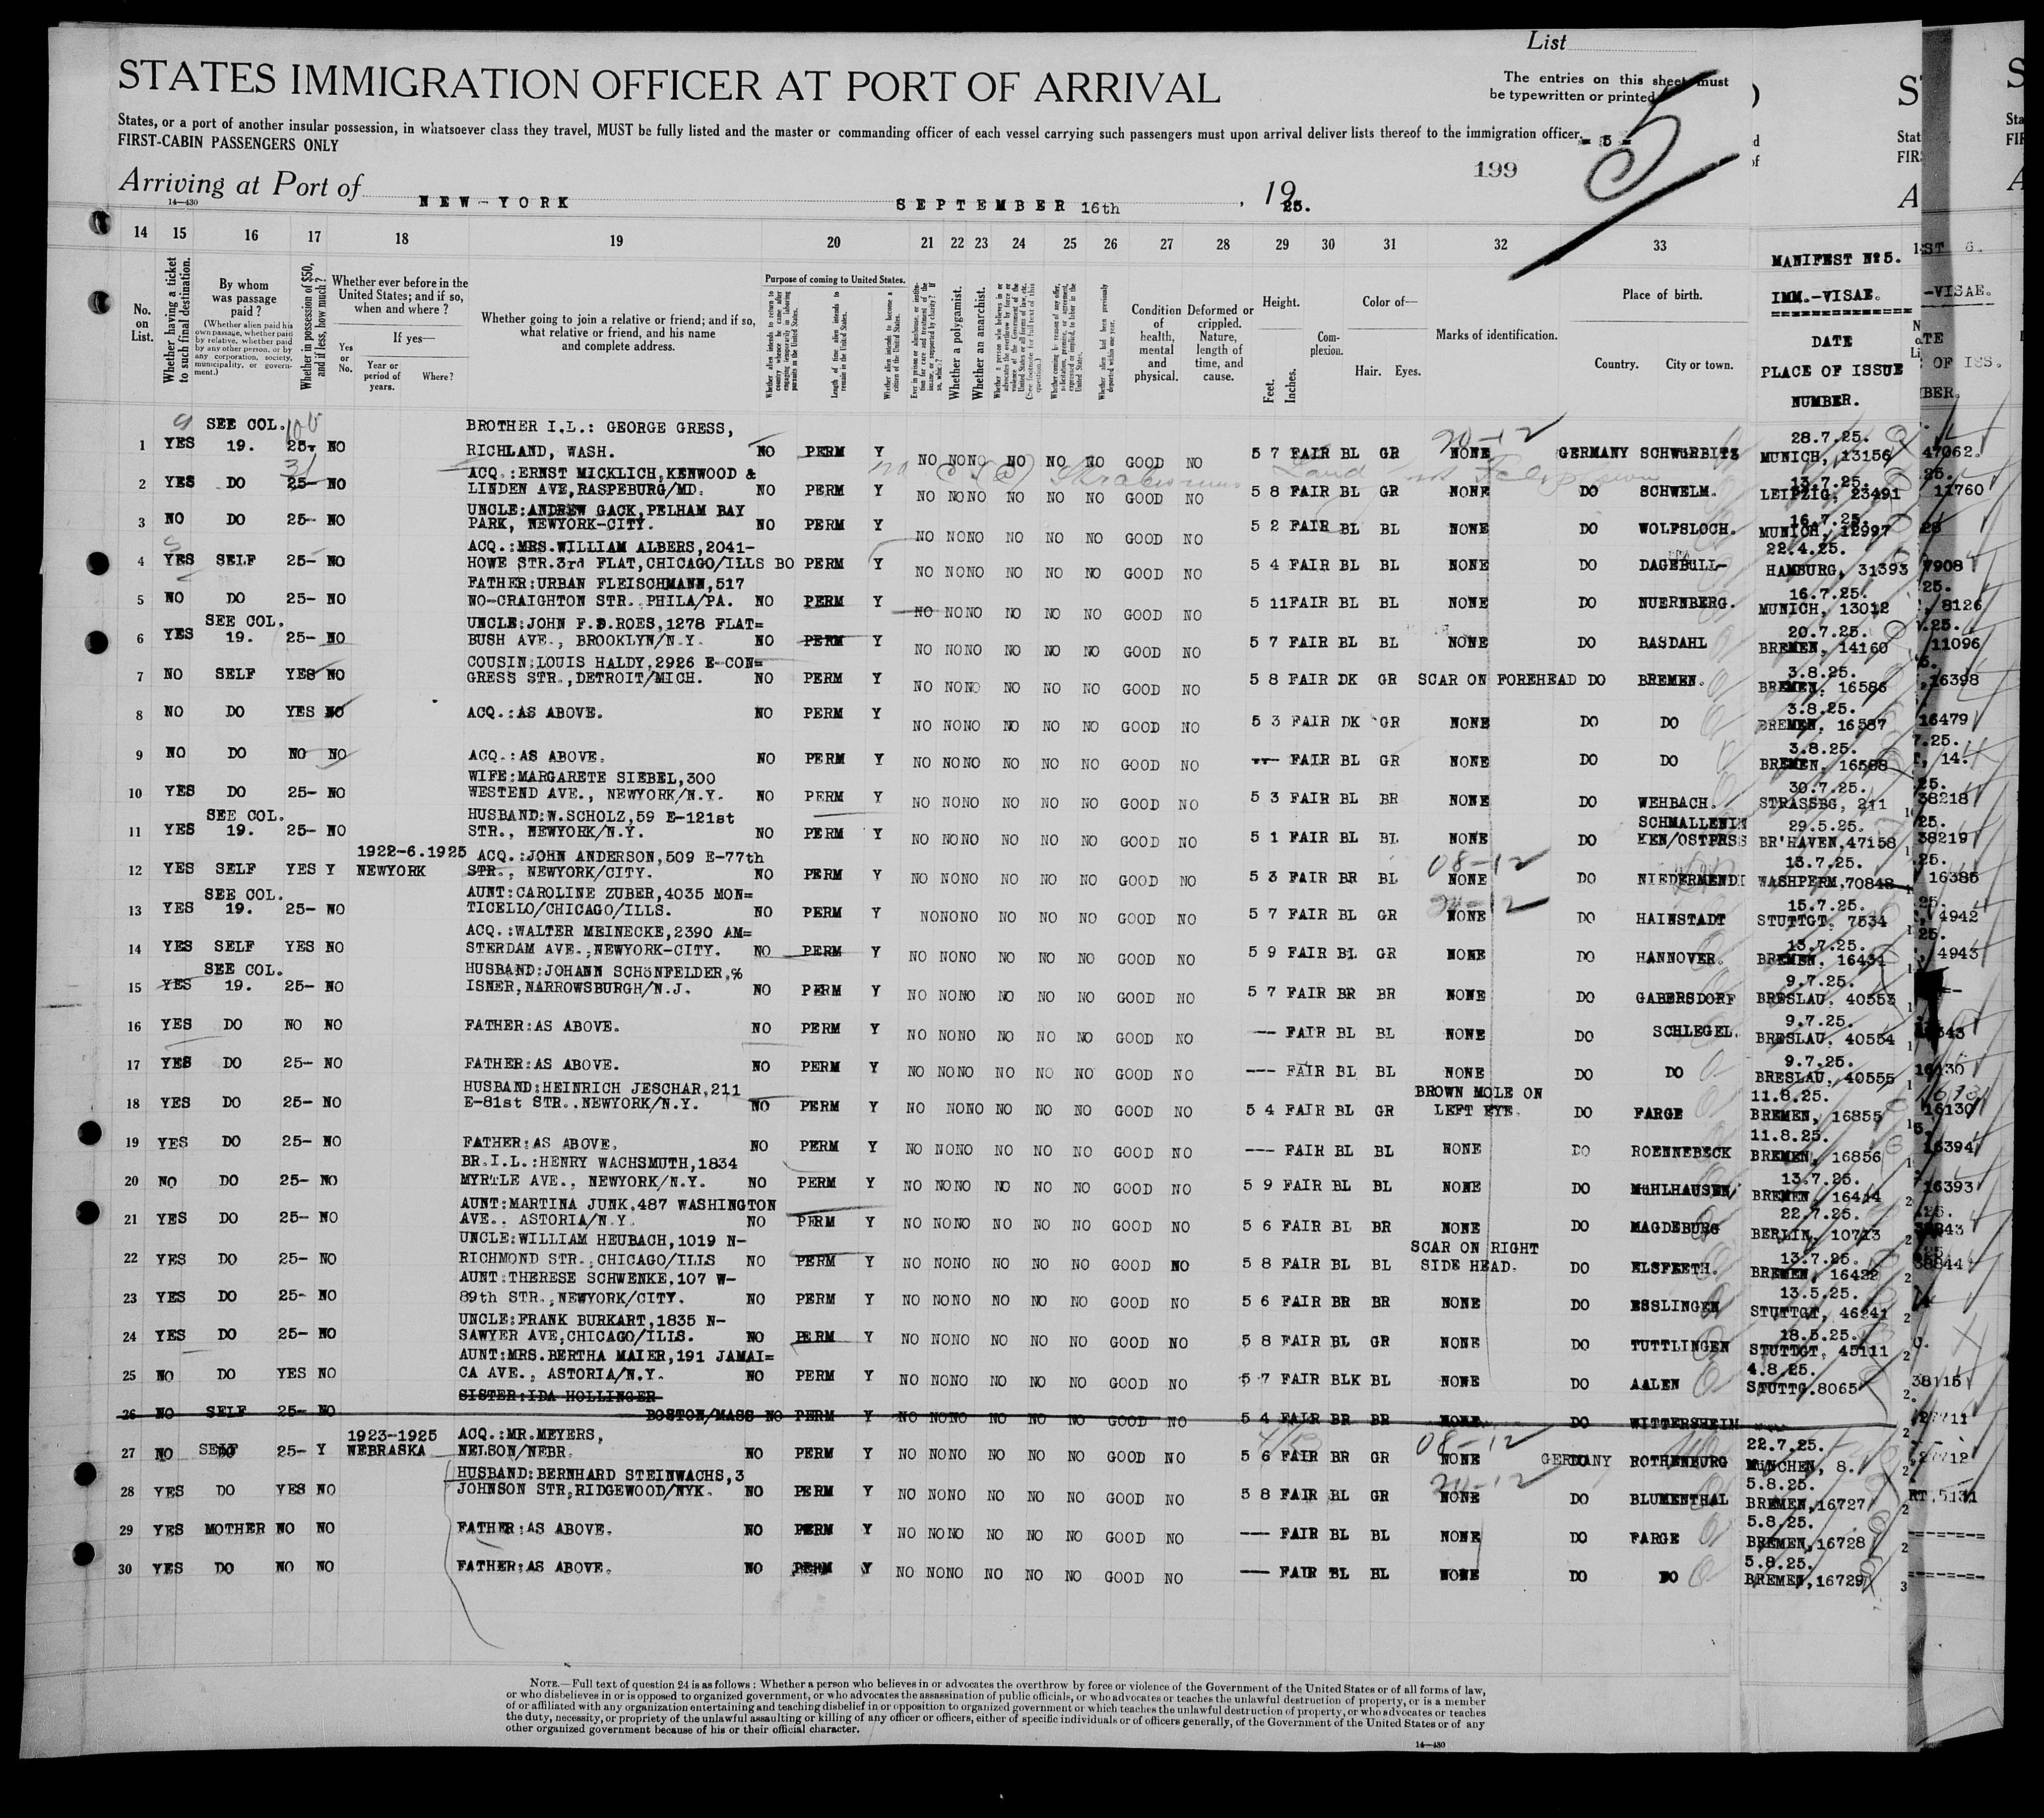 List
STATES IMMIGRATION OFFICER AT PORT OF ARRIVAL
The entries on this sheet must
be typewritten or printed
States, or a port of another insular possession, in whatsoever class they travel, MUST be fully listed and the master or commanding officer of each vessel carrying such passengers must upon arrival deliver lists thereof to the immigration officer.
FIRST-CABIN PASSENGERS ONLY
- 5 -
5
199
Arriving at Port of NEW-YORK SEPTEMBER 16th, 1925.
14—430
14 15 16 17 18 19 20 21 22 23 24 25 26 27 28 29 30 31 32 33
No. on List.
Whether having a ticket to such final destination.
By whom was passage paid?
(Whether alien paid his own passage, whether paid by relative, whether paid by any other person, or by any corporation, society, municipality, or government.)
Whether in possession of $50, and if less, how much?
Whether ever before in the United States; and if so, when and where?
If yes—
Yes or No.
Year or period of years.
Where?
Whether going to join a relative or friend; and if so, what relative or friend, and his name and complete address.
Purpose of coming to United States.
Whether alien intends to return to country whence he came after engaging temporarily in laboring pursuits in the United States.
Length of time alien intends to remain in the United States.
Whether alien intends to become a citizen of the United States.
Whether a polygamist.
Whether an anarchist.
Whether alien had been previously deported within one year.
Condition of health, mental and physical.
Deformed or crippled. Nature, length of time, and cause.
Height.
Feet. Inches.
Complexion.
Color of—
Hair. Eyes.
Marks of identification.
Place of birth.
Country. City or town.
MANIFEST No 5.
IMM.-VISAE.
DATE
PLACE OF ISSUE
NUMBER.
SEE COL. BROTHER I.L.: GEORGE GRESS, 20-12 28.7.25.
1 YES 19. 25- NO RICHLAND, WASH. NO PERM Y NO NO NO NO NO NO GOOD NO 5 7 FAIR BL GR NONE GERMANY SCHWüRBITZ MUNICH, 13156
ACQ.:ERNST MICKLICH,KENWOOD & 13.7.25.
2 YES DO 25- NO LINDEN AVE,RASPEBURG/MD. NO PERM Y NO NO NO NO NO NO GOOD NO 5 8 FAIR BL GR NONE DO SCHWELM. LEIPZIG, 23491
UNCLE:ANDREW GACK,PELHAM BAY 16.7.25.
3 NO DO 25- NO PARK, NEWYORK-CITY. NO PERM Y NO NO NO NO NO NO GOOD NO 5 2 FAIR BL BL NONE DO WOLFSLOCH. MUNICH, 12997
ACQ.:MRS.WILLIAM ALBERS,2041- 22.4.25.
4 YES SELF 25- NO HOWE STR.3rd FLAT,CHICAGO/ILLS BO PERM Y NO NO NO NO NO NO GOOD NO 5 4 FAIR BL BL NONE DO DAGEBüLL- HAMBURG, 31393
FATHER:URBAN FLEISCHMANN,517 16.7.25.
5 NO DO 25- NO NO-CRAIGHTON STR. PHILA/PA. NO PERM Y NO NO NO NO NO NO GOOD NO 5 11 FAIR BL BL NONE DO NUERNBERG. MUNICH, 13012
SEE COL. UNCLE:JOHN F.D.ROES,1278 FLAT= 20.7.25.
6 YES 19. 25- NO BUSH AVE., BROOKLYN/N.Y. NO PERM Y NO NO NO NO NO NO GOOD NO 5 7 FAIR BL BL NONE DO BASDAHL BREMEN, 14160
COUSIN:LOUIS HALDY,2926 E-CON= 3.8.25.
7 NO SELF YES NO GRESS STR.,DETROIT/MICH. NO PERM Y NO NO NO NO NO NO GOOD NO 5 8 FAIR DK GR SCAR ON FOREHEAD DO BREMEN. BREMEN, 16586
3.8.25.
8 NO DO YES NO ACQ.:AS ABOVE. NO PERM Y NO NO NO NO NO NO GOOD NO 5 3 FAIR DK GR NONE DO DO BREMEN, 16587
3.8.25.
9 NO DO NO NO ACQ.:AS ABOVE. NO PERM Y NO NO NO NO NO NO GOOD NO --- FAIR BL GR NONE DO DO BREMEN, 16588
WIFE:MARGARETE SIEBEL,300 30.7.25.
10 YES DO 25- NO WESTEND AVE., NEWYORK/N.Y. NO PERM Y NO NO NO NO NO NO GOOD NO 5 3 FAIR BL BR NONE DO WEHBACH. STRASSBG, 211
SEE COL. HUSBAND:W.SCHOLZ,59 E-121st SCHMALLENIN 29.5.25.
11 YES 19. 25- NO STR., NEWYORK/N.Y. NO PERM Y NO NO NO NO NO NO GOOD NO 5 1 FAIR BL BL NONE DO KEN/OSTPRSS BR'HAVEN,47158
1922-6.1925 ACQ.:JOHN ANDERSON,509 E-77th 08-12 13.7.25.
12 YES SELF YES Y NEWYORK STR., NEWYORK/CITY. NO PERM Y NO NO NO NO NO NO GOOD NO 5 3 FAIR BR BL NONE DO NIEDERMENDI WASHPERM,70848
SEE COL. AUNT:CAROLINE ZUBER,4035 MON= 20-12 15.7.25.
13 YES 19. 25- NO TICELLO/CHICAGO/ILLS. NO PERM Y NO NO NO NO NO NO GOOD NO 5 7 FAIR BL GR NONE DO HAINSTADT STUTTGT. 7534
ACQ.:WALTER MEINECKE,2390 AM= 13.7.25.
14 YES SELF YES NO STERDAM AVE.,NEWYORK-CITY. NO PERM Y NO NO NO NO NO NO GOOD NO 5 9 FAIR BL GR NONE DO HANNOVER. BREMEN, 16431
SEE COL. HUSBAND:JOHANN SCHöNFELDER,% 9.7.25.
15 YES 19. 25- NO ISNER,NARROWSBURGH/N.J. NO PERM Y NO NO NO NO NO NO GOOD NO 5 7 FAIR BR BR NONE DO GABERSDORF BRESLAU, 40553
9.7.25.
16 YES DO NO NO FATHER:AS ABOVE. NO PERM Y NO NO NO NO NO NO GOOD NO --- FAIR BL BL NONE DO SCHLEGEL. BRESLAU, 40554
9.7.25.
17 YES DO 25- NO FATHER:AS ABOVE. NO PERM Y NO NO NO NO NO NO GOOD NO --- FAIR BL BL NONE DO DO BRESLAU, 40555
HUSBAND:HEINRICH JESCHAR,211 BROWN MOLE ON 11.8.25.
18 YES DO 25- NO E-81st STR..NEWYORK/N.Y. NO PERM Y NO NO NO NO NO NO GOOD NO 5 4 FAIR BL GR LEFT EYE. DO FARGE BREMEN, 16855
11.8.25.
19 YES DO 25- NO FATHER:AS ABOVE. NO PERM Y NO NO NO NO NO NO GOOD NO --- FAIR BL BL NONE DO ROENNEBECK BREMEN, 16856
BR.I.L.:HENRY WACHSMUTH,1834 13.7.25.
20 NO DO 25- NO MYRTLE AVE., NEWYORK/N.Y. NO PERM Y NO NO NO NO NO NO GOOD NO 5 9 FAIR BL BL NONE DO MüHLHAUSEN/ BREMEN, 16414
AUNT:MARTINA JUNK.487 WASHINGTON 22.7.25.
21 YES DO 25- NO AVE.. ASTORIA/N.Y. NO PERM Y NO NO NO NO NO NO GOOD NO 5 6 FAIR BL BR NONE DO MAGDEBURG BERLIN, 10713
UNCLE:WILLIAM HEUBACH,1019 N- SCAR ON RIGHT 13.7.25.
22 YES DO 25- NO RICHMOND STR.,CHICAGO/ILLS NO PERM Y NO NO NO NO NO NO GOOD NO 5 8 FAIR BL BL SIDE HEAD. DO ELSFEETH. BREMEN, 16422
AUNT:THERESE SCHWENKE,107 W- 13.5.25.
23 YES DO 25- NO 89th STR.,NEWYORK/CITY. NO PERM Y NO NO NO NO NO NO GOOD NO 5 6 FAIR BR BR NONE DO ESSLINGEN STUTTGT, 46241
UNCLE:FRANK BURKART,1835 N- 18.5.25.
24 YES DO 25- NO SAWYER AVE,CHICAGO/ILLS. NO PERM Y NO NO NO NO NO NO GOOD NO 5 8 FAIR BL GR NONE DO TUTTLINGEN STUTTGT, 45111
AUNT:MRS.BERTHA MAIER,191 JAMAI= 4.8.25.
25 NO DO YES NO CA AVE., ASTORIA/N.Y. NO PERM Y NO NO NO NO NO NO GOOD NO 5 7 FAIR BLK BL NONE DO AALEN STUTTG.8065
SISTER:IDA HOLLINGER
26 NO SELF 25- NO BOSTON/MASS NO PERM Y NO NO NO NO NO NO GOOD NO 5 4 FAIR BR BR NONE DO WITTERSHEIM
1923-1925 ACQ.:MR.MEYERS, 08-12 22.7.25.
27 NO SELF 25- Y NEBRASKA NELSON/NEBR. NO PERM Y NO NO NO NO NO NO GOOD NO 5 6 FAIR BR GR NONE GERMANY ROTHENBURG MüNCHEN, 8.
HUSBAND:BERNHARD STEINWACHS,3 20-12 5.8.25.
28 YES DO YES NO JOHNSON STR,RIDGEWOOD/NYK. NO PERM Y NO NO NO NO NO NO GOOD NO 5 8 FAIR BL GR NONE DO BLUMENTHAL BREMEN,16727
5.8.25.
29 YES MOTHER NO NO FATHER:AS ABOVE. NO PERM Y NO NO NO NO NO NO GOOD NO --- FAIR BL BL NONE DO FARGE BREMEN,16728
5.8.25.
30 YES DO NO NO FATHER:AS ABOVE. NO PERM Y NO NO NO NO NO NO GOOD NO --- FAIR BL BL NONE DO DO BREMEN,16729
NOTE.—Full text of question 24 is as follows: Whether a person who believes in or advocates the overthrow by force or violence of the Government of the United States or of all forms of law,
or who disbelieves in or is opposed to organized government, or who advocates the assassination of public officials, or who advocates or teaches the unlawful destruction of property, or is a member
of or affiliated with any organization entertaining and teaching disbelief in or opposition to organized government or which teaches the unlawful destruction of property, or who advocates or teaches
the duty, necessity, or propriety of the unlawful assaulting or killing of any officer or officers, either of specific individuals or of officers generally, of the Government of the United States or of any
other organized government because of his or their official character.
14—430